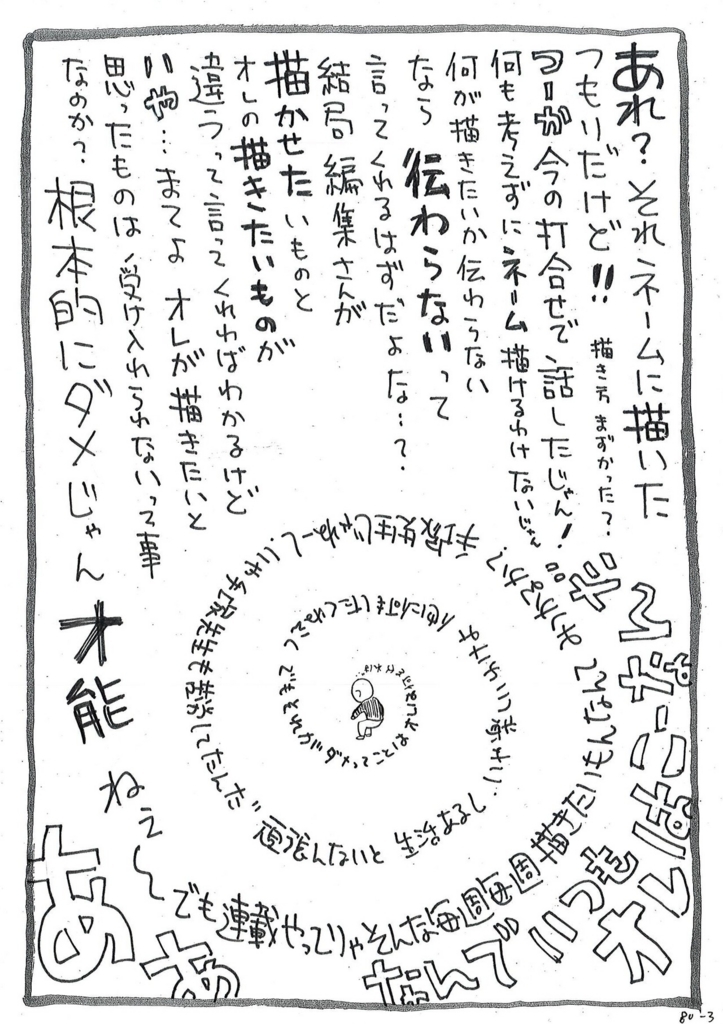 あれ？それネームに描いた
つもりだけど!!描き方まずかった？
つーか今の打合せで話したじゃん！
何も考えずにネーム描けるわけないじゃん
何が描きたいか伝わらない
なら伝わらないって
言ってくれるはずだよな…？
結局編集さんが
描かせたいものと
オレの描きたいものが
違うって言ってくれればわかるけど
いや…まてよオレが描きたいと
思ったものは受け入れられないって事
なのか？根本的にダメじゃん才能
ねぇ〜でも連載やってりゃそんな毎週毎週描きたいもんなんて
手塚先生じゃねーし
いや手塚先生も苦労してたんだ
頑張んないと生活あるし
でもそれがダメってことはオレ
あぁ
なんでいつも
オレは
80-3